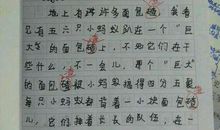 地上有许多面包碴，我看
见有五六只小蚂蚁趴在一个“巨
大”的面包碴上，不知它们在干
些什么，不一会儿，那个“巨大”
的面包碴被小蚂蚁搞得四分五裂
每只小蚂蚁都背着一小块面包碴
儿，它们排着长长的队伍，在